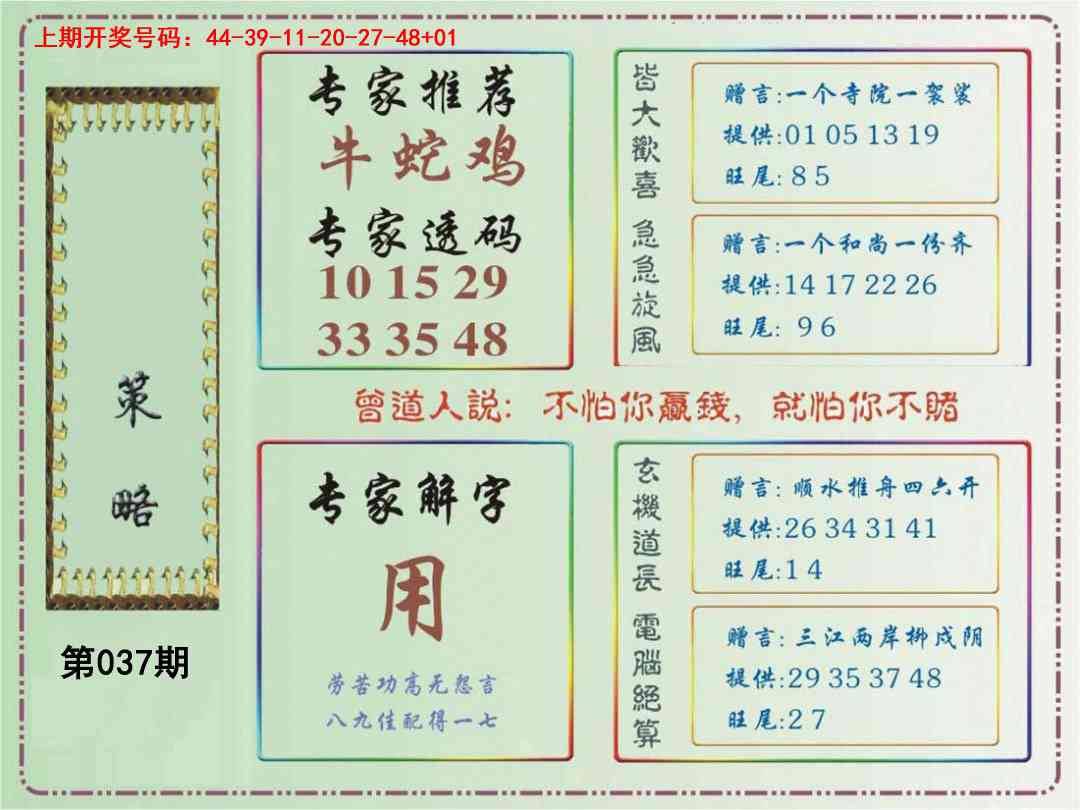 上期开奖号码：44-39-11-20-27-48+01
策略
第037期
专家推荐
牛蛇鸡
专家透码
10 15 29
33 35 48
皆大歡喜
赠言:一个寺院一袈裟
提供:01 05 13 19
旺尾: 8 5
急急旋風
赠言:一个和尚一份齐
提供:14 17 22 26
旺尾: 9 6
曾道人説: 不怕你贏錢, 就怕你不賭
专家解字
用
劳苦功高无怨言
八九佳配得一七
玄機道長
赠言: 顺水推舟四六开
提供:26 34 31 41
旺尾:1 4
電腦絕算
赠言: 三江两岸柳成阴
提供:29 35 37 48
旺尾:2 7